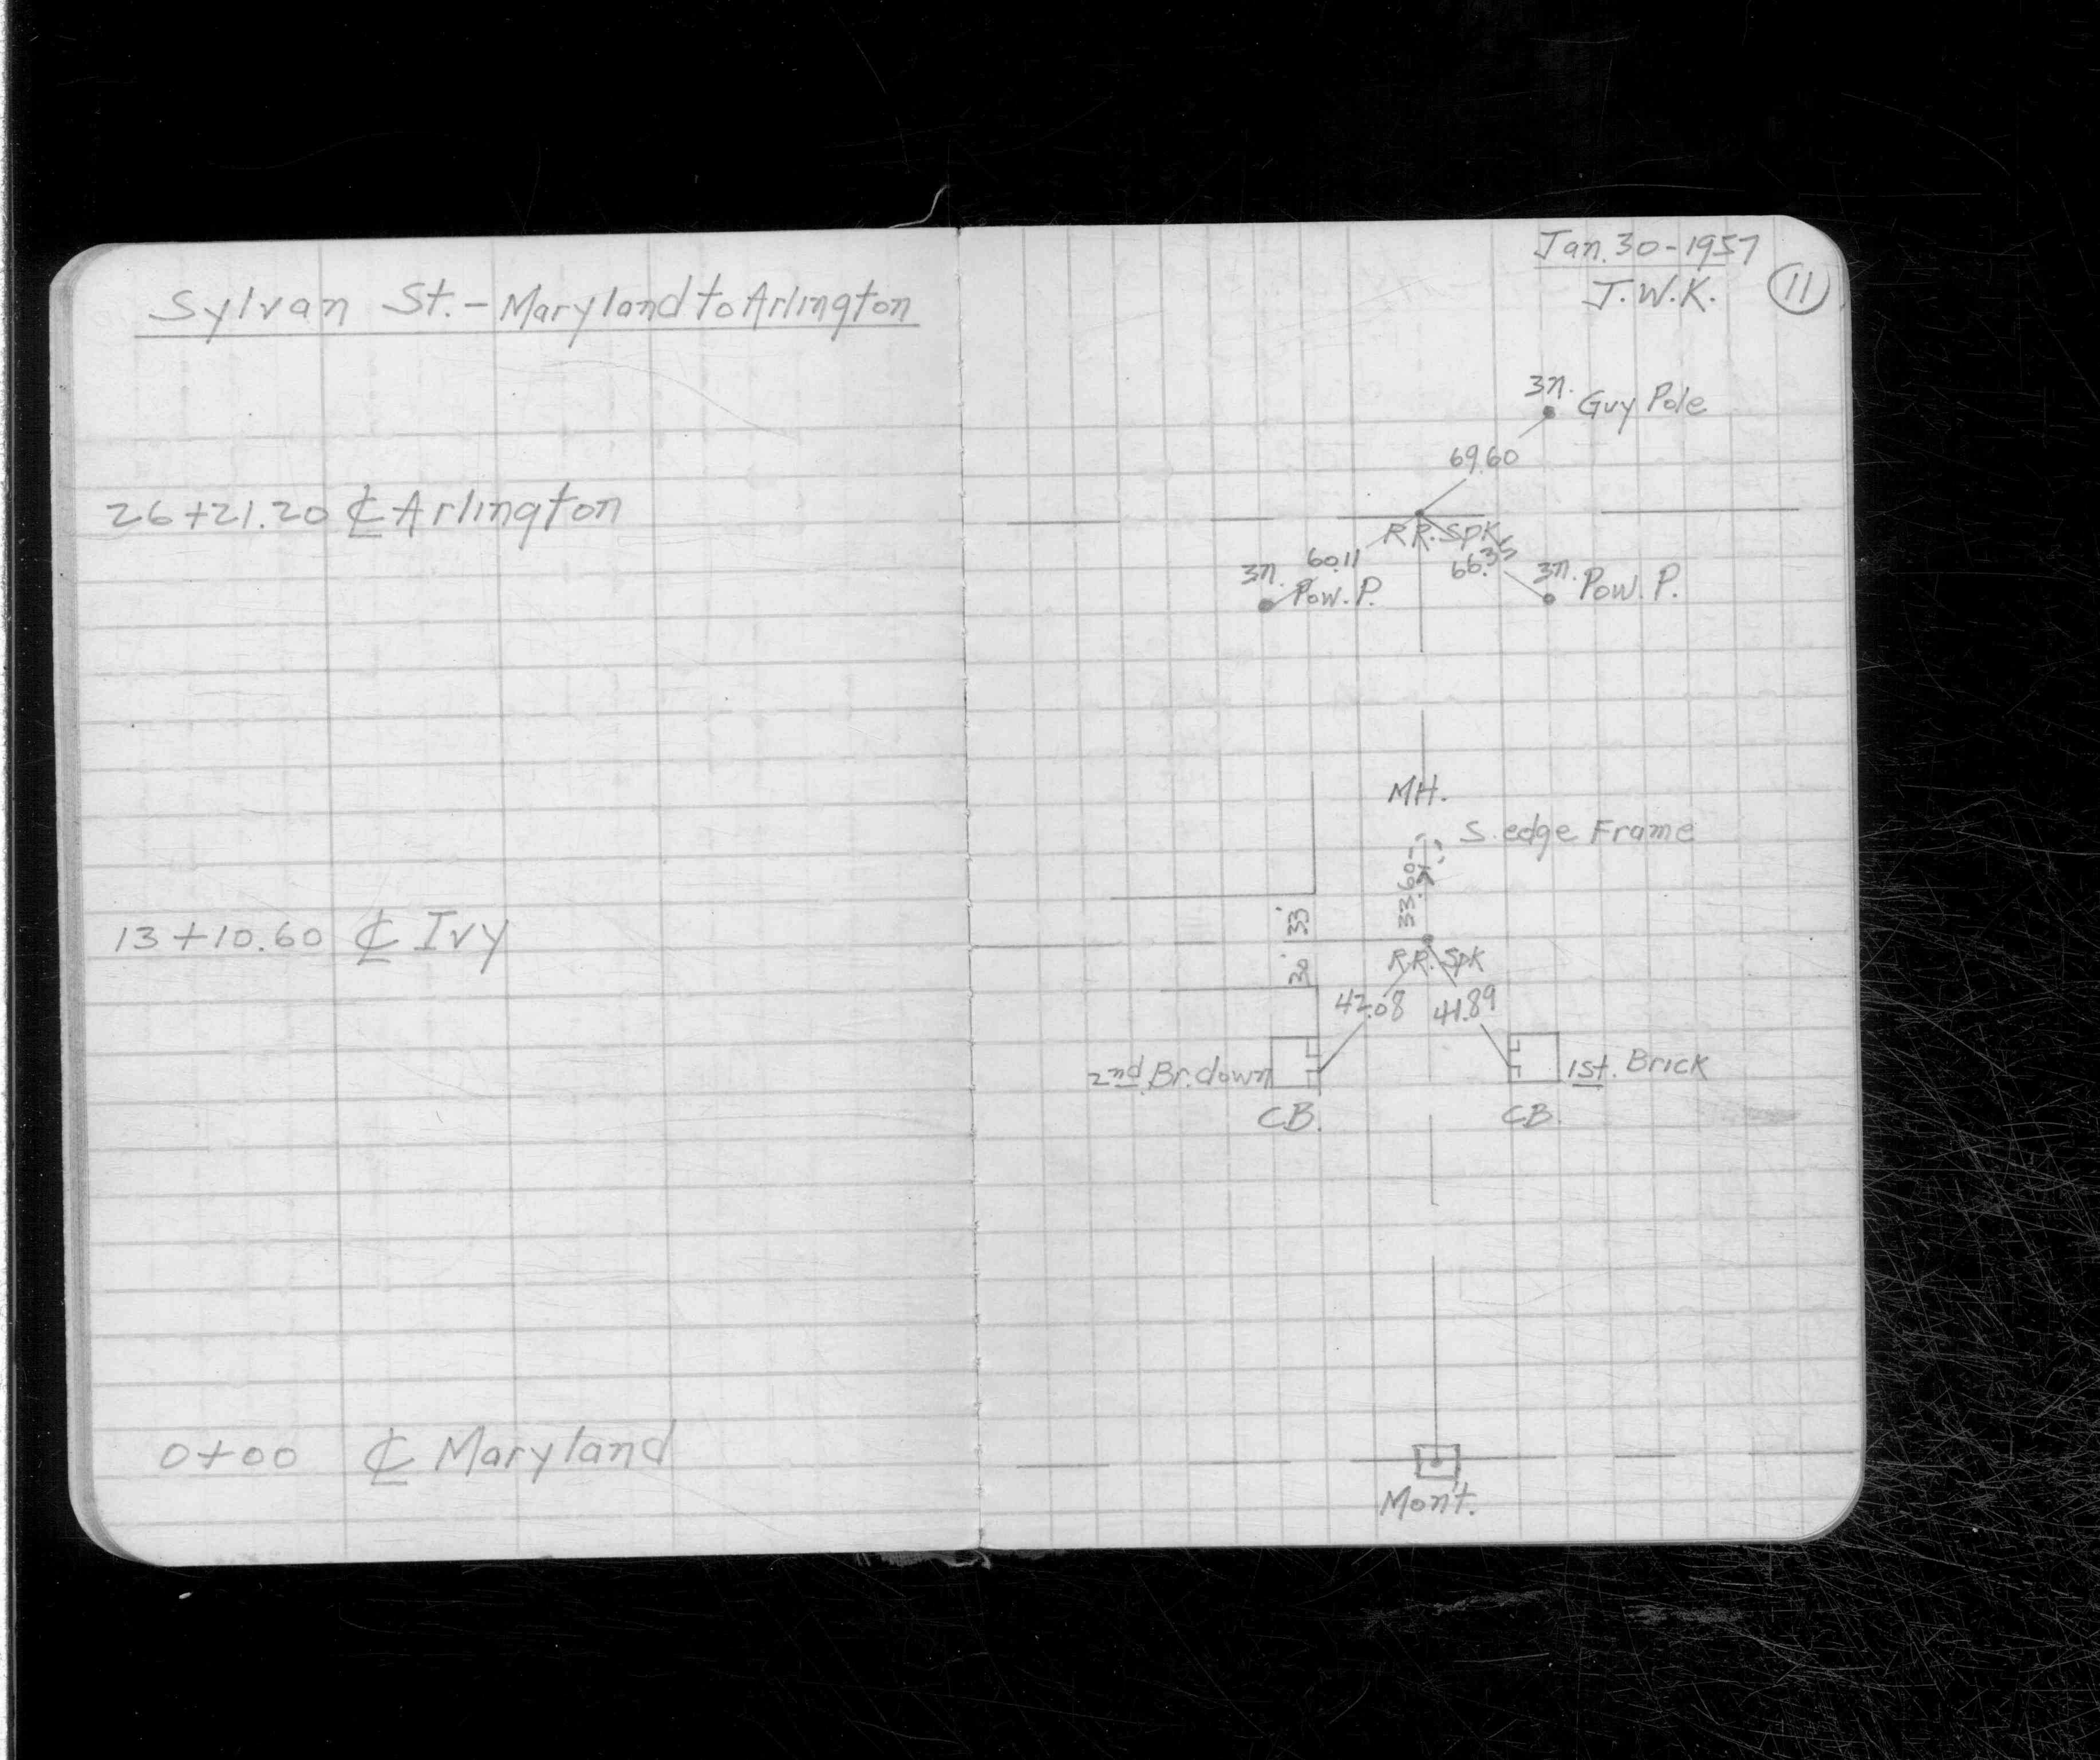 Sylvan St. - Maryland to Arlington
26+21.20 ℄ Arlington
13+10.60 ℄ Ivy
0+00 ℄ Maryland
Jan. 30-1957
J.W.K. 11
3n. Guy Pole
69.60
R.R. Spk
60.11 66.35
3n. Pow. P. 3n. Pow. P.
MH.
S. edge Frame
33.60
33'
R.R. Spk
30'
42.08 41.89
2nd Br. down 1st. Brick
C.B. C.B.
Mon't.